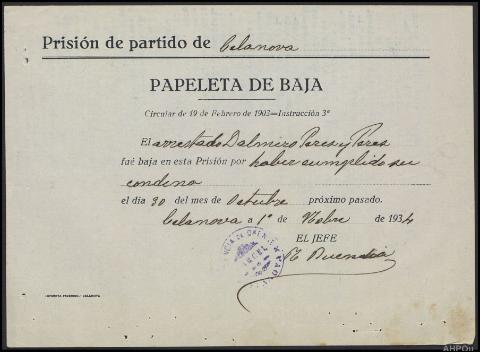 Prisión de partido de Celanova
PAPELETA DE BAJA
Circular de 19 de Febrero de 1903=Instrucción 3ª
El arrestado Dalmiro Peres y Peres
fué baja en esta Prisión por haber cumplido su
condena
el día 30 del mes de Octubre próximo pasado.
Celanova a 1º de Nbre de 1934
EL JEFE
R Buendia
IMPRENTA CELANOVA
AHPOu